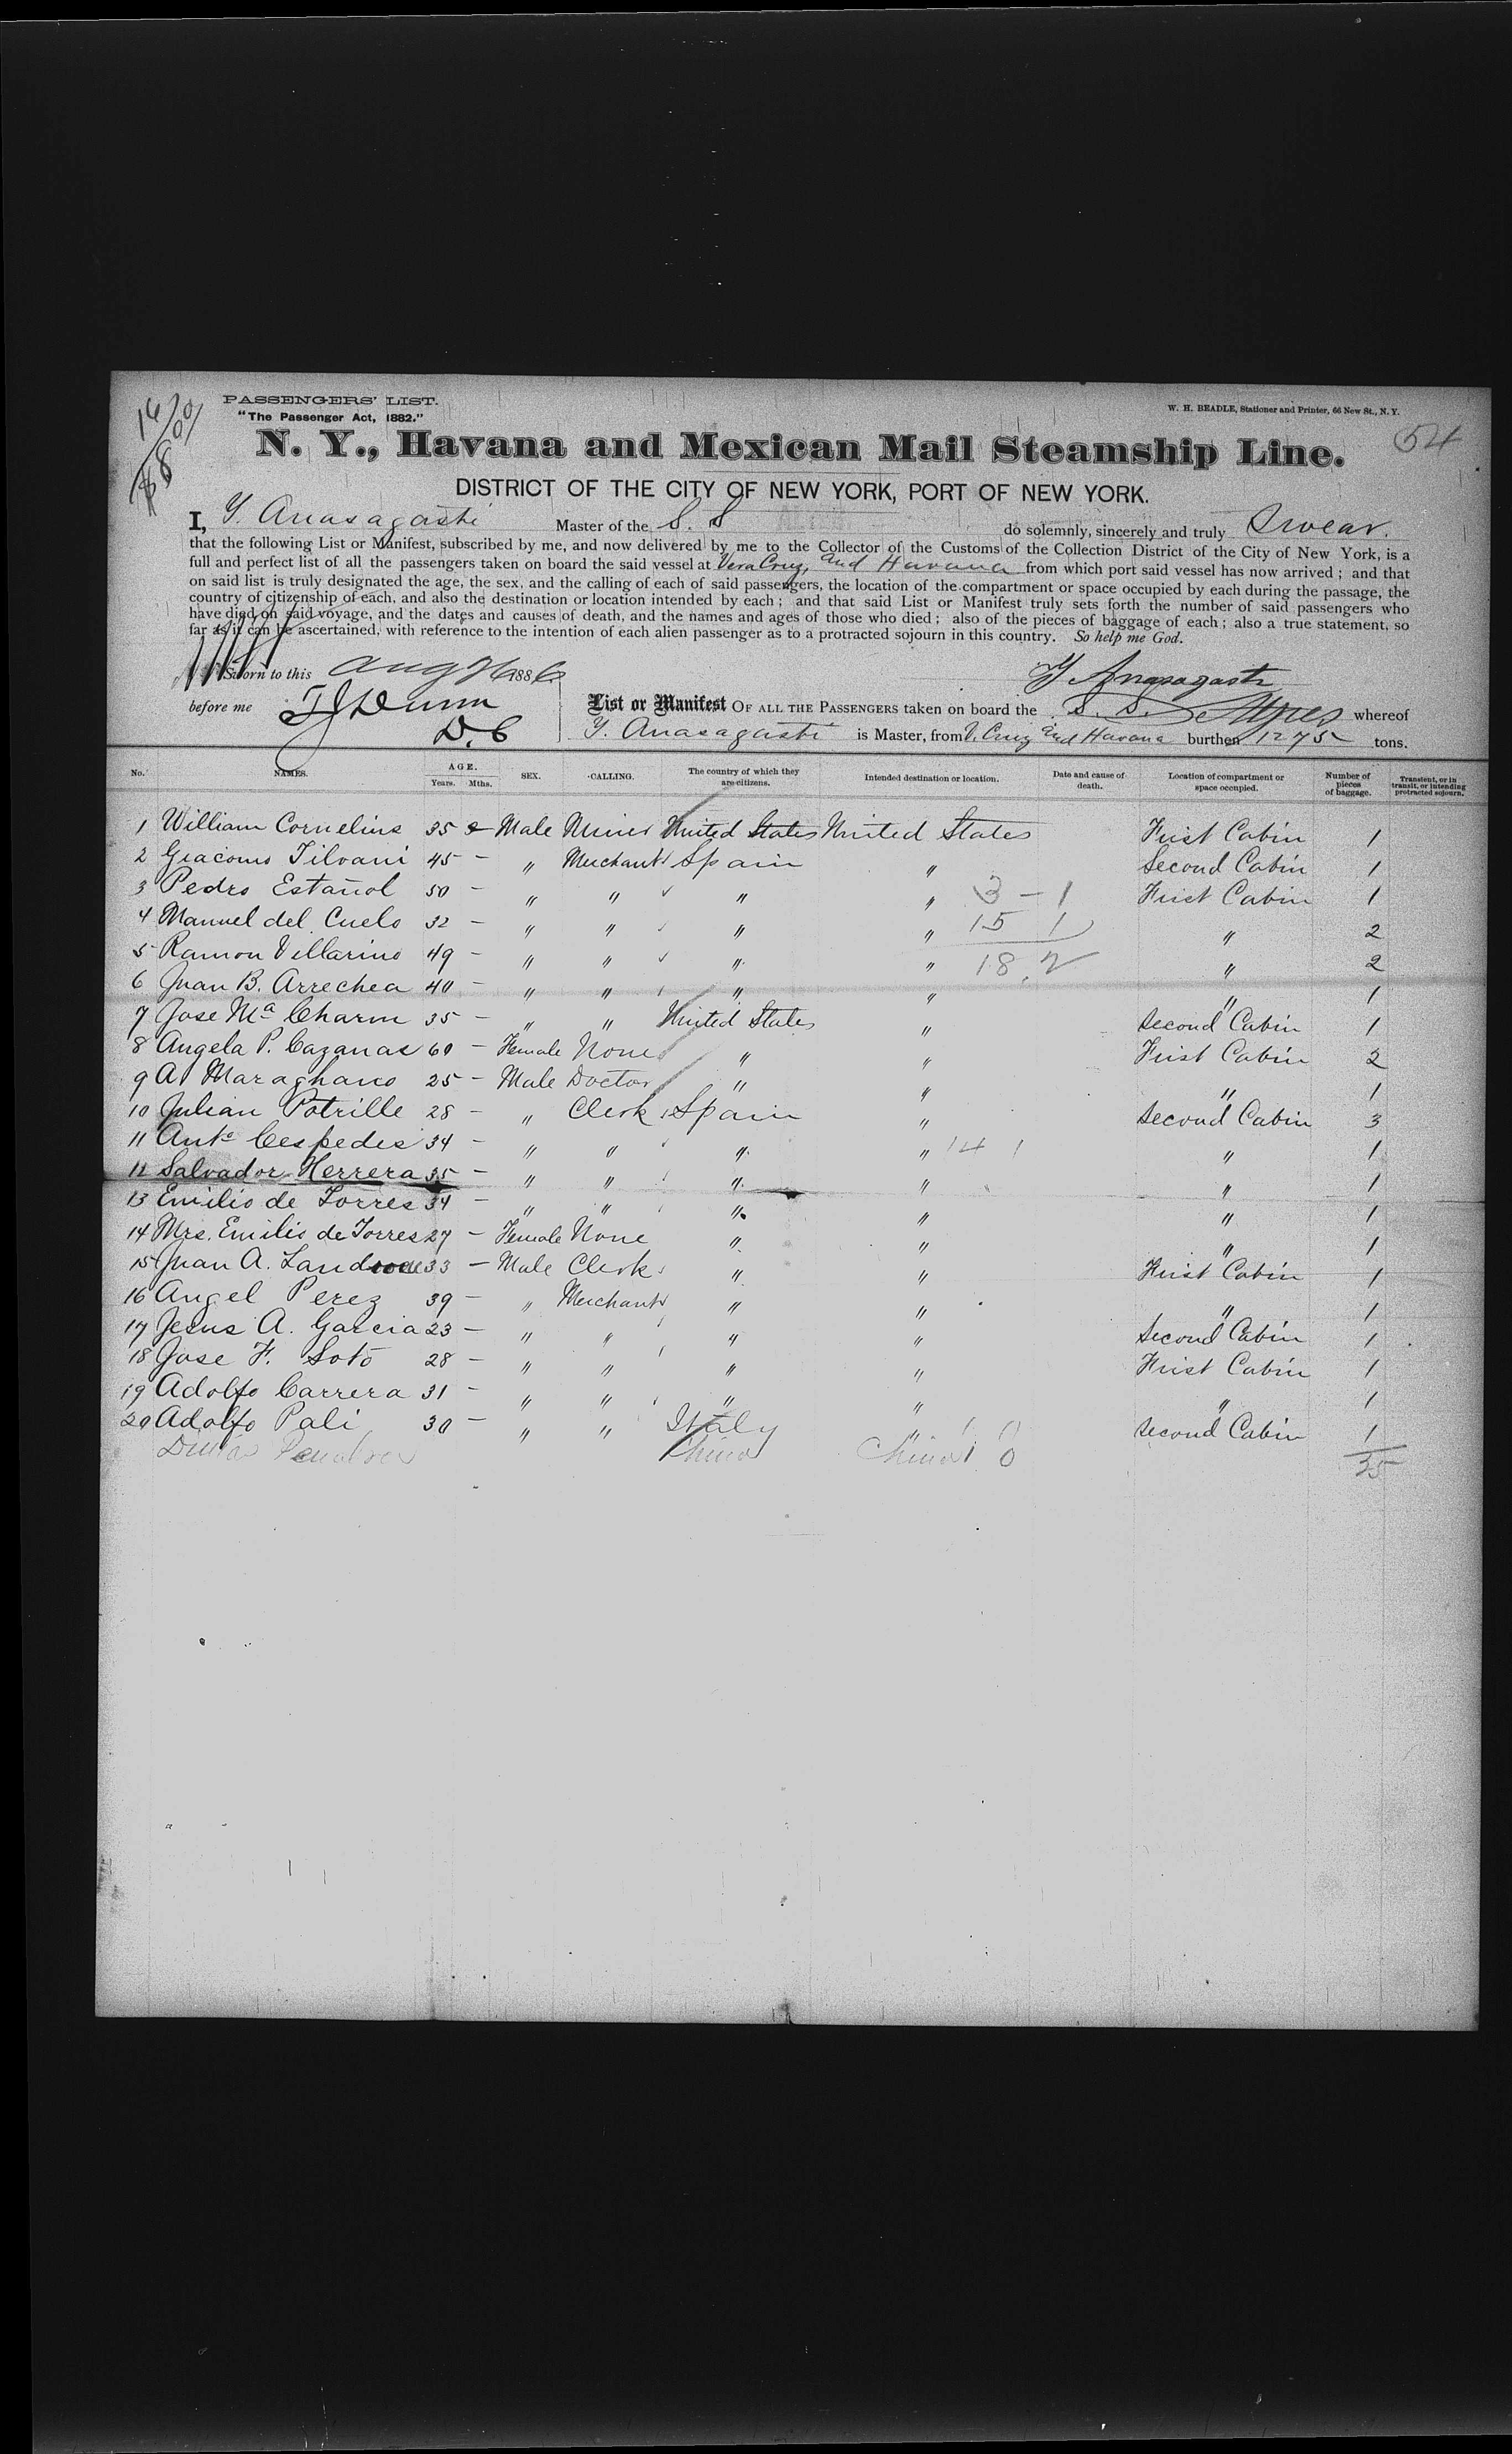 PASSENGERS' LIST.
"The Passenger Act, 1882."
W. H. BEADLE, Stationer and Printer, 66 New St., N. Y.
54
N. Y., Havana and Mexican Mail Steamship Line.
DISTRICT OF THE CITY OF NEW YORK, PORT OF NEW YORK.
I, Y. Anasagasti Master of the S. S do solemnly, sincerely and truly Swear.
that the following List or Manifest, subscribed by me, and now delivered by me to the Collector of the Customs of the Collection District of the City of New York, is a
full and perfect list of all the passengers taken on board the said vessel at Vera Cruz, and Havana from which port said vessel has now arrived; and that
on said list is truly designated the age, the sex, and the calling of each of said passengers, the location of the compartment or space occupied by each during the passage, the
country of citizenship of each, and also the destination or location intended by each; and that said List or Manifest truly sets forth the number of said passengers who
have died on said voyage, and the dates and causes of death, and the names and ages of those who died; also of the pieces of baggage of each; also a true statement, so
far as it can be ascertained, with reference to the intention of each alien passenger as to a protracted sojourn in this country. So help me God.
Sworn to this Aug 26 1886 Y Anasagasti
before me T J Dunn D. C
List or Manifest OF ALL THE PASSENGERS taken on board the S. S. whereof
Y. Anasagasti is Master, from V. Cruz and Havana burthen 1275 tons.
No. NAMES. AGE. Years. Mths. SEX. CALLING. The country of which they are citizens. Intended destination or location. Date and cause of death. Location of compartment or space occupied. Number of pieces of baggage. Transient, or in transit, or intending protracted sojourn.
1 William Cornelius 35 - Male Miner United States United States First Cabin 1
2 Giacomo Tilvani 45 - " Merchant Spain " Second Cabin 1
3 Pedro Estañol 50 - " " " " 3 - 1 First Cabin 1
4 Manuel del Cuelo 32 - " " " " 15 1 " 2
5 Ramon Villarino 49 - " " " " 18. 2 " 2
6 Juan B. Arrechea 40 - " " " " " 1
7 Jose Ma Charm 35 - " " United States " Second Cabin 1
8 Angela P. Cazanas 60 - Female None " " First Cabin 2
9 A Maraghano 25 - Male Doctor " " " 1
10 Julian Potrille 28 - " Clerk Spain " Second Cabin 3
11 Anto Cespedes 34 - " " " " 14 1 " 1
12 Salvador Herrera 35 - " " " " " 1
13 Emilio de Torres 34 - " " " " " 1
14 Mrs. Emilio de Torres 27 - Female None " " " 1
15 Juan A. 33 - Male Clerk " " First Cabin 1
16 Angel Perez 39 - " Merchant " " " 1
17 Jesus A. Garcia 23 - " " " " Second Cabin 1
18 Jose F. Soto 28 - " " " " First Cabin 1
19 Adolfo Carrera 31 - " " " " " 1
20 Adolfo Pali 30 - " " Italy " Second Cabin 1
China China 1 0
35